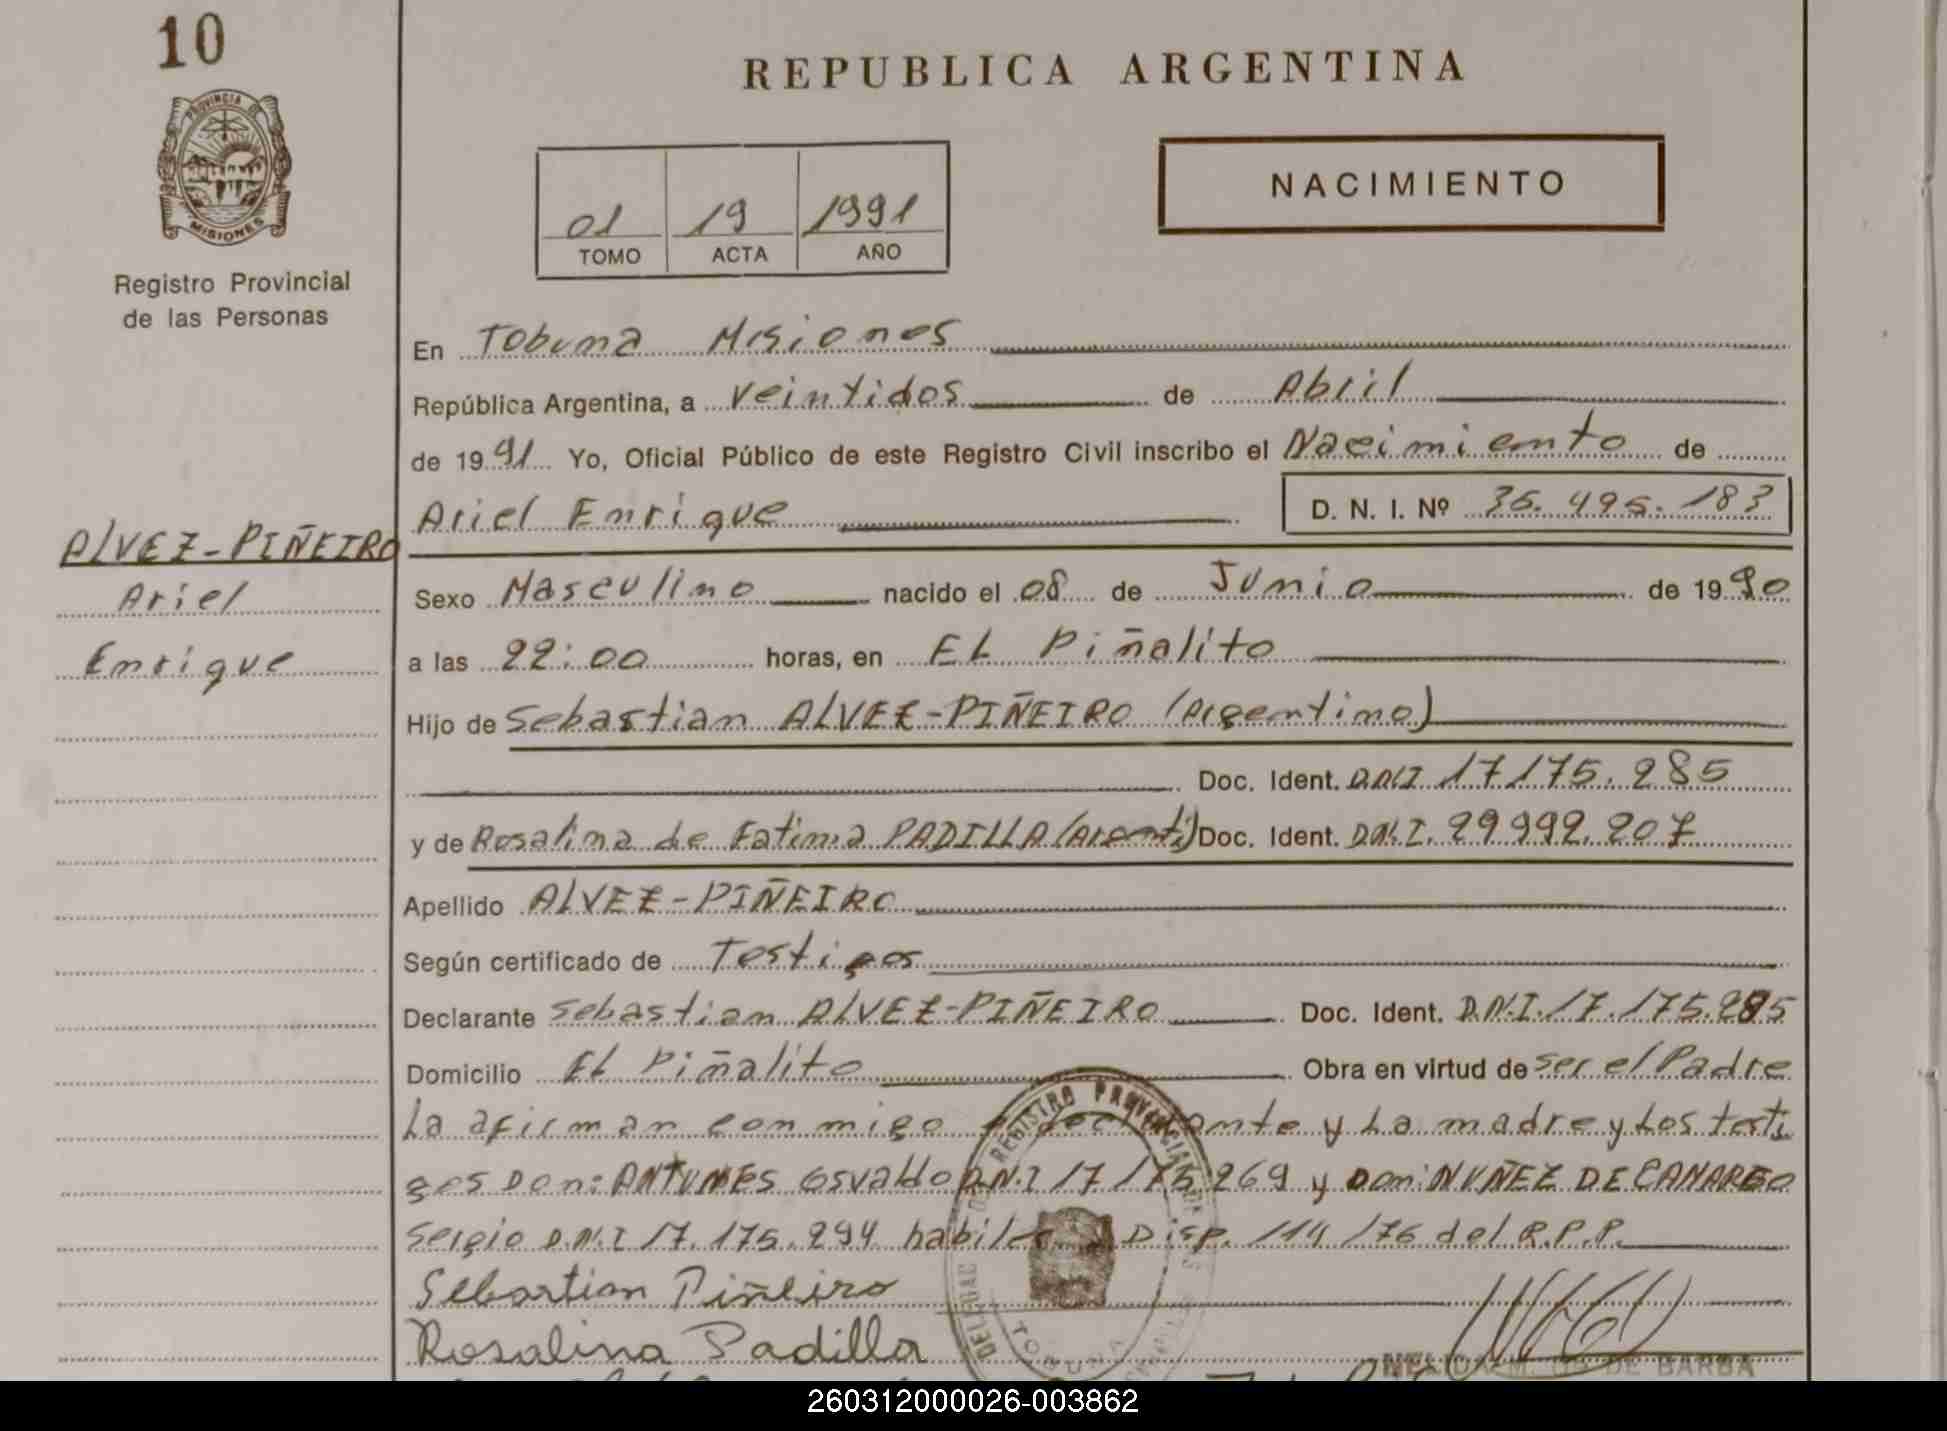 10
PROVINCIA DE
MISIONES
Registro Provincial
de las Personas
ALVEZ-PIÑEIRO
Ariel
Enrique
REPUBLICA ARGENTINA
01 19 1991
TOMO ACTA AÑO
NACIMIENTO
En Tobuna Misiones
República Argentina, a veintidos de Abril
de 1991 Yo, Oficial Público de este Registro Civil inscribo el Nacimiento de
Ariel Enrique D. N. I. Nº 35.495.183
Sexo Masculino nacido el 08 de Junio de 1990
a las 22:00 horas, en EL Piñalito
Hijo de Sebastian ALVEZ-PIÑEIRO (Argentino)
Doc. Ident. D.N.I. 17175.285
y de Rosalina de Fatima PADILLA (Argenti) Doc. Ident. D.N.I. 29992.207
Apellido ALVEZ-PIÑEIRO
Según certificado de Testigos
Declarante Sebastian ALVEZ-PIÑEIRO Doc. Ident. D.N.I. 17.175.285
Domicilio EL Piñalito Obra en virtud de ser el Padre
La afirman conmigo y La madre y Los testi
gos Don: ANTUNES Osvaldo D.N.I 17175269 y Don: NUÑEZ DE CAMARGO
Sergio D.N.I 17.175.294 Disp. 114/76 del R.P.P.
Sebastian Piñeiro
Rosalina Padilla
REGISTRO PROVINCIAL DE
TOBUNA
DE BARBA
260312000026-003862